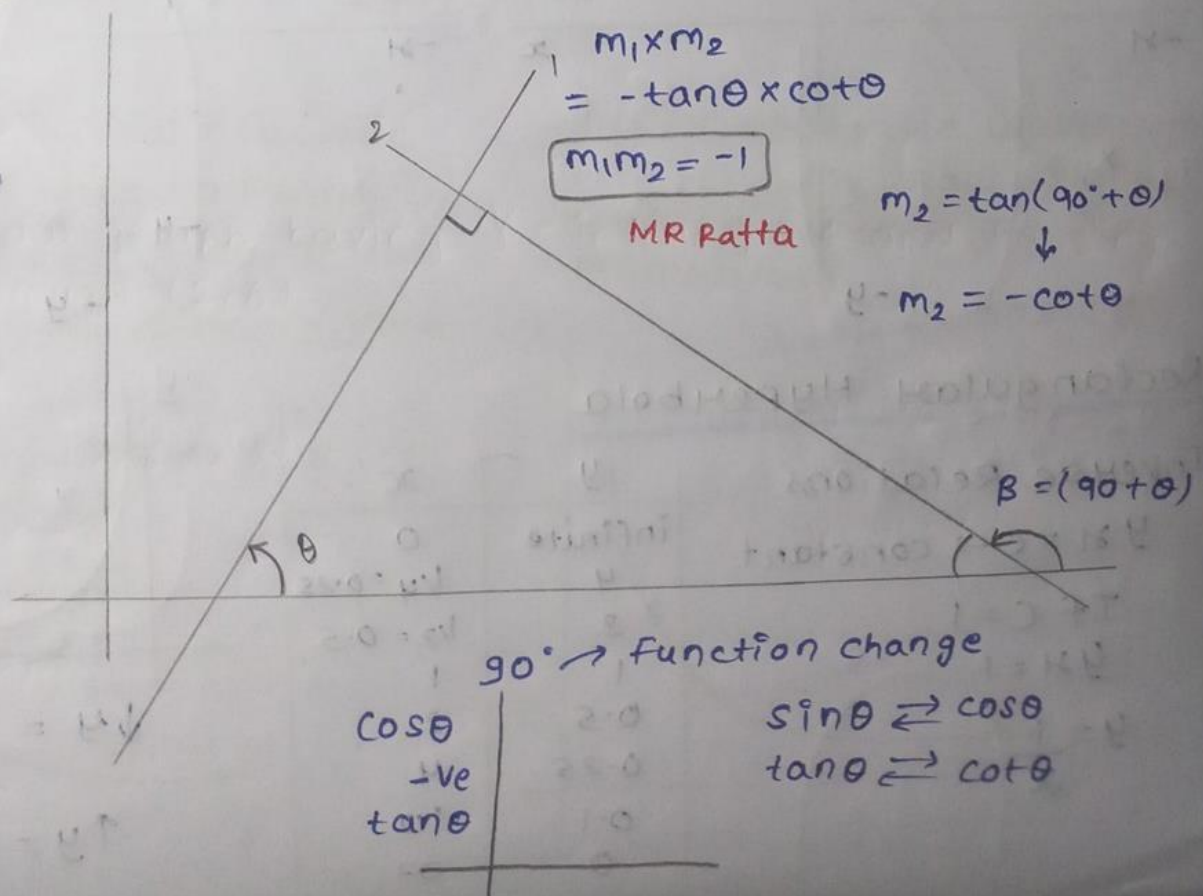 1
m₁×m₂
= -tanθ×cotθ
2
m₁m₂ = -1
MR Ratta
m₂ = tan(90°+θ)
↓
m₂ = -cotθ
β = (90+θ)
θ
90° → Function change
cosθ
-ve
tanθ
sinθ ⇄ cosθ
tanθ ⇄ cotθ